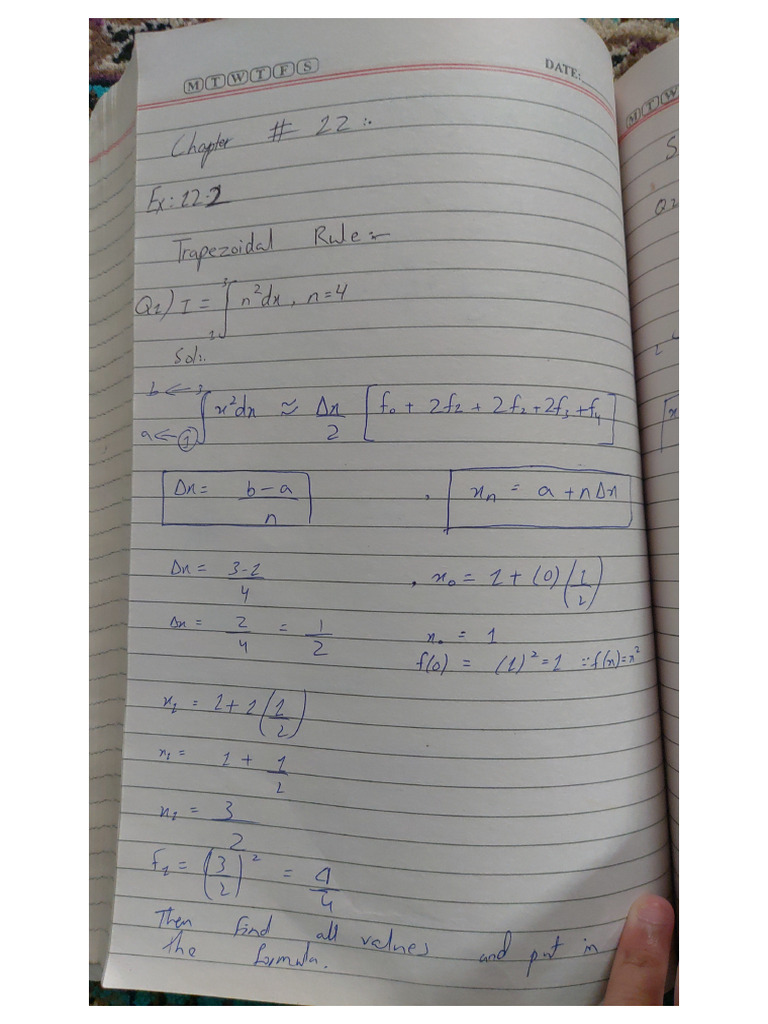 M T W T F S
DATE:
Chapter # 22:-
Ex: 22.2
Trapezoidal Rule:-
Q1) I = ∫₁³ n²dx, n=4
Sol:.
b ← 3
∫ x²dx ≈ Δx/2 [f₀ + 2f₁ + 2f₂ + 2f₃ + f₄]
a ← 1
Δx = b-a/n , xₙ = a + nΔx
Δx = 3-1/4 , x₀ = 1 + (0)(1/2)
Δx = 2/4 = 1/2 x₀ = 1
f(0) = (1)² = 1 ∵ f(x) = x²
x₁ = 1 + 1(1/2)
x₁ = 1 + 1/2
x₁ = 3/2
f₁ = (3/2)² = 9/4
Then find all values and put in
the formula.
M T W